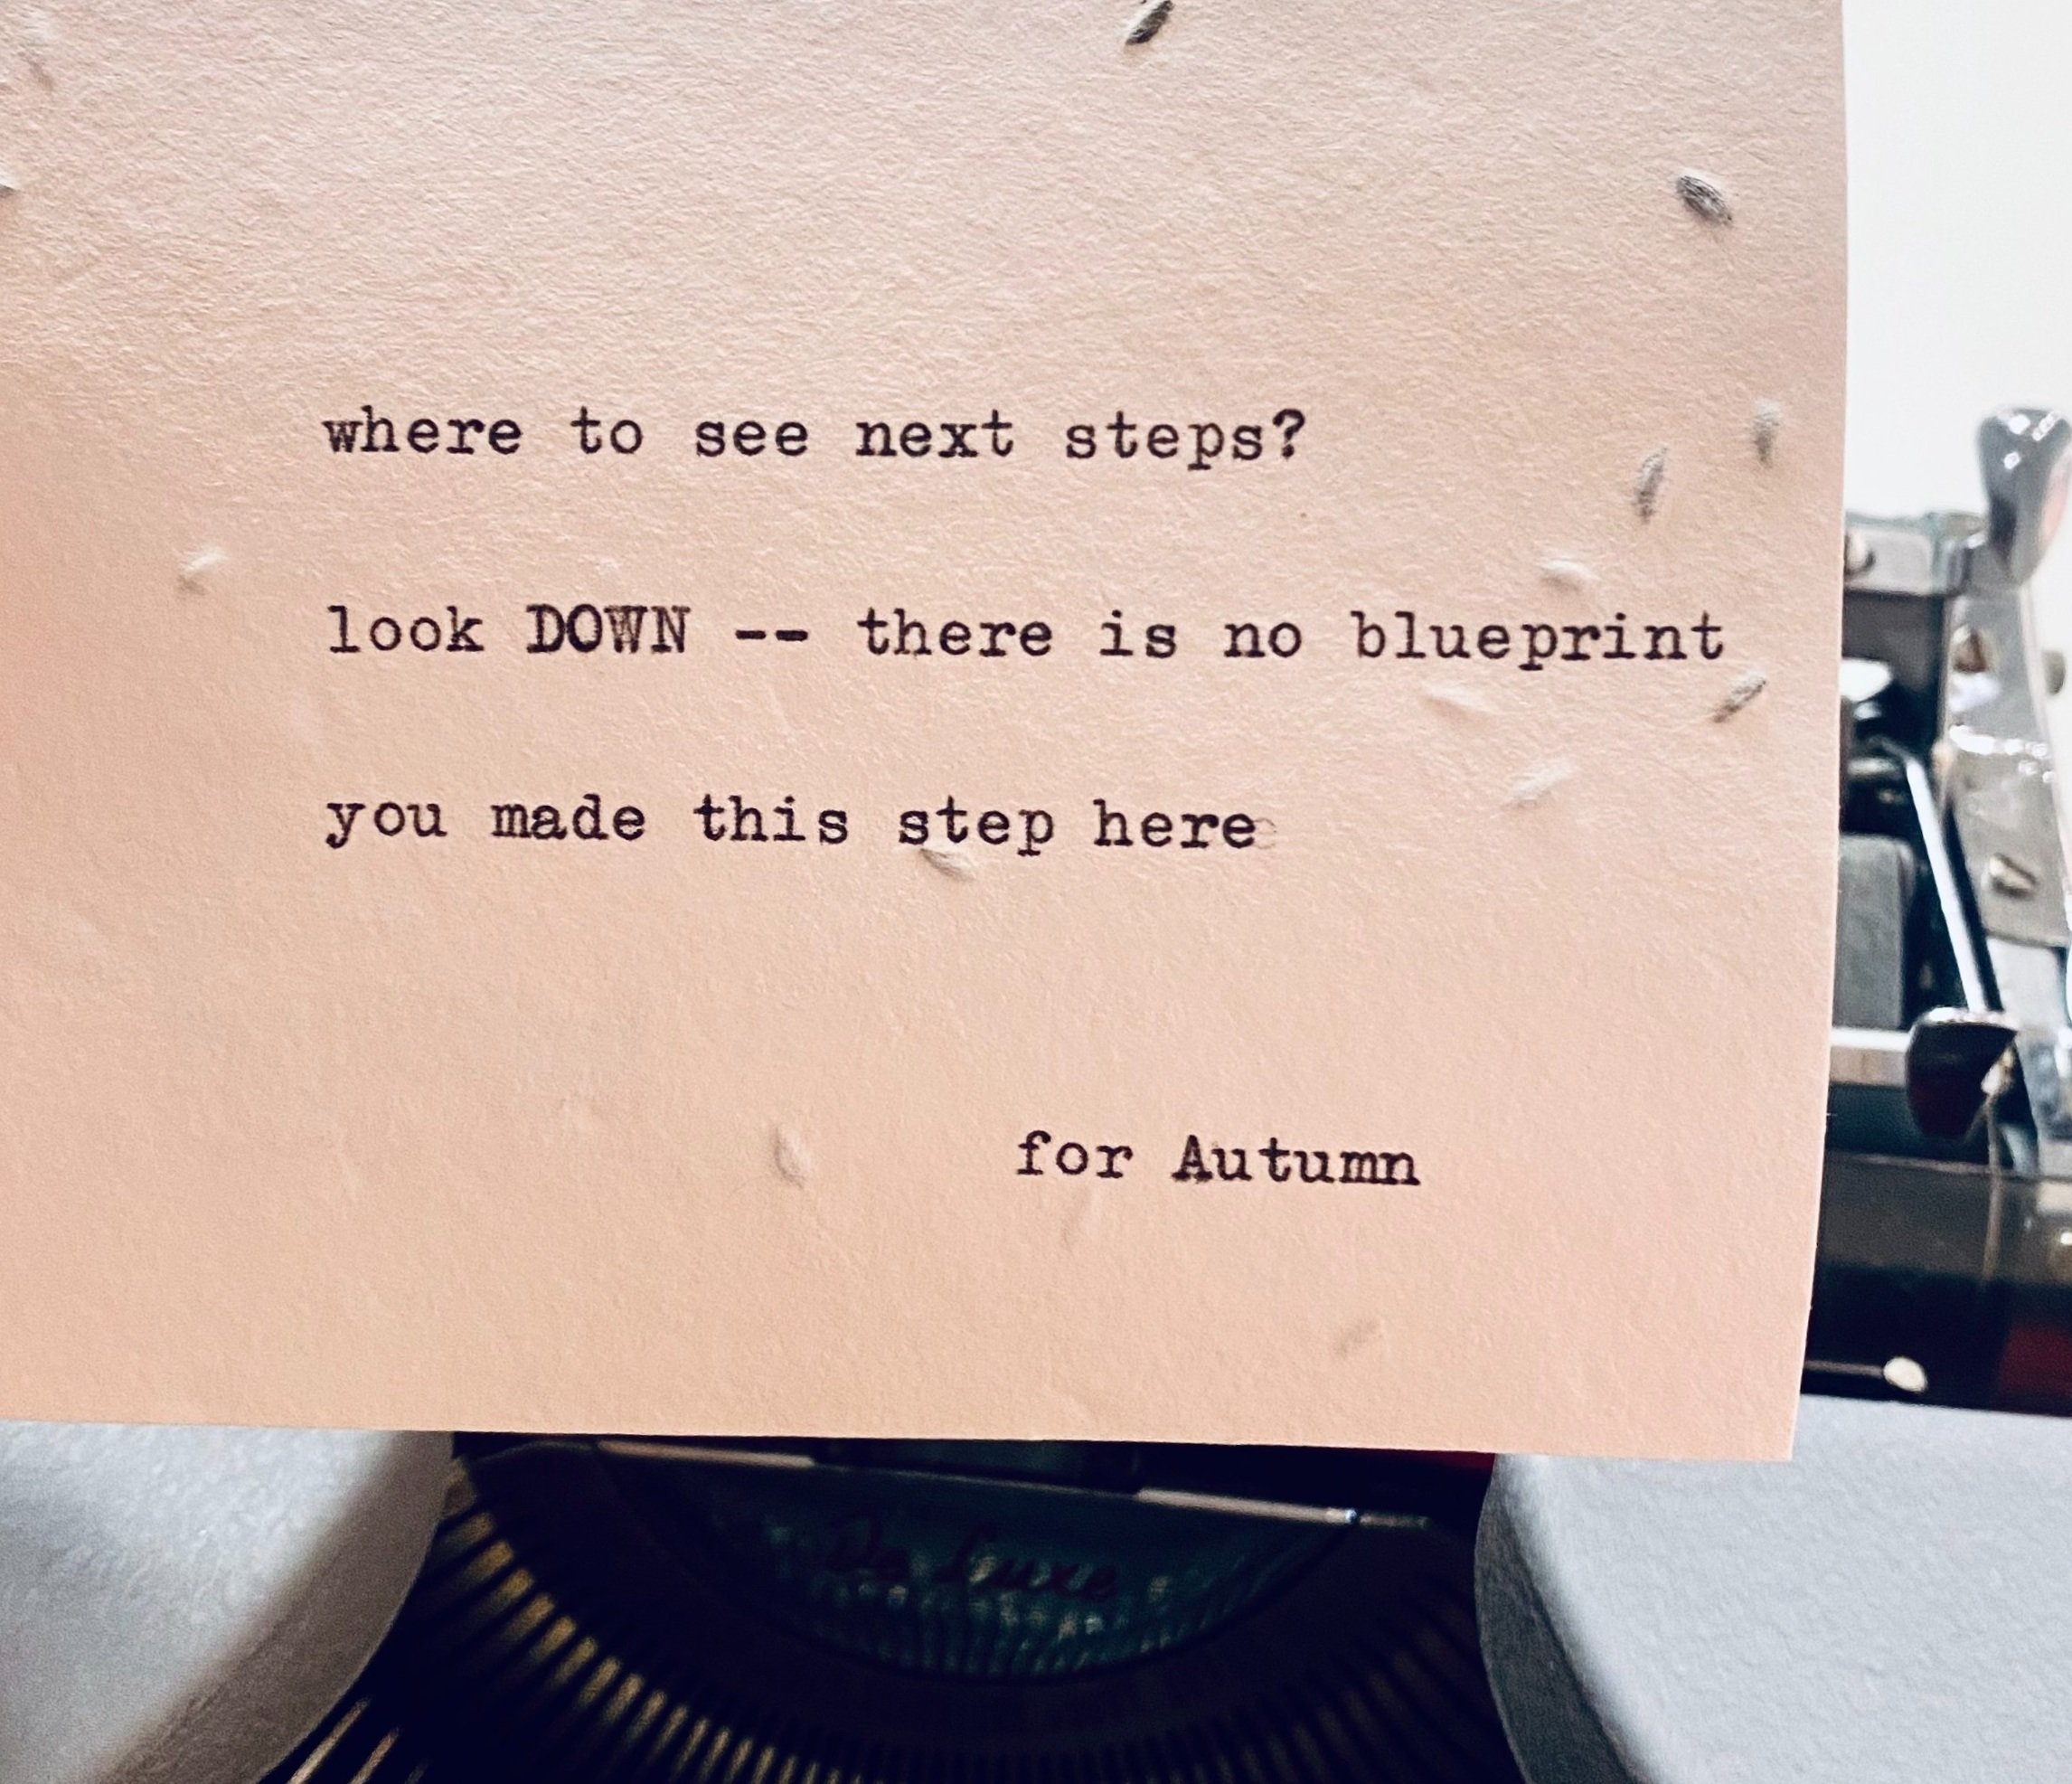 where to see next steps?
look DOWN -- there is no blueprint
you made this step here
for Autumn
De Luxe